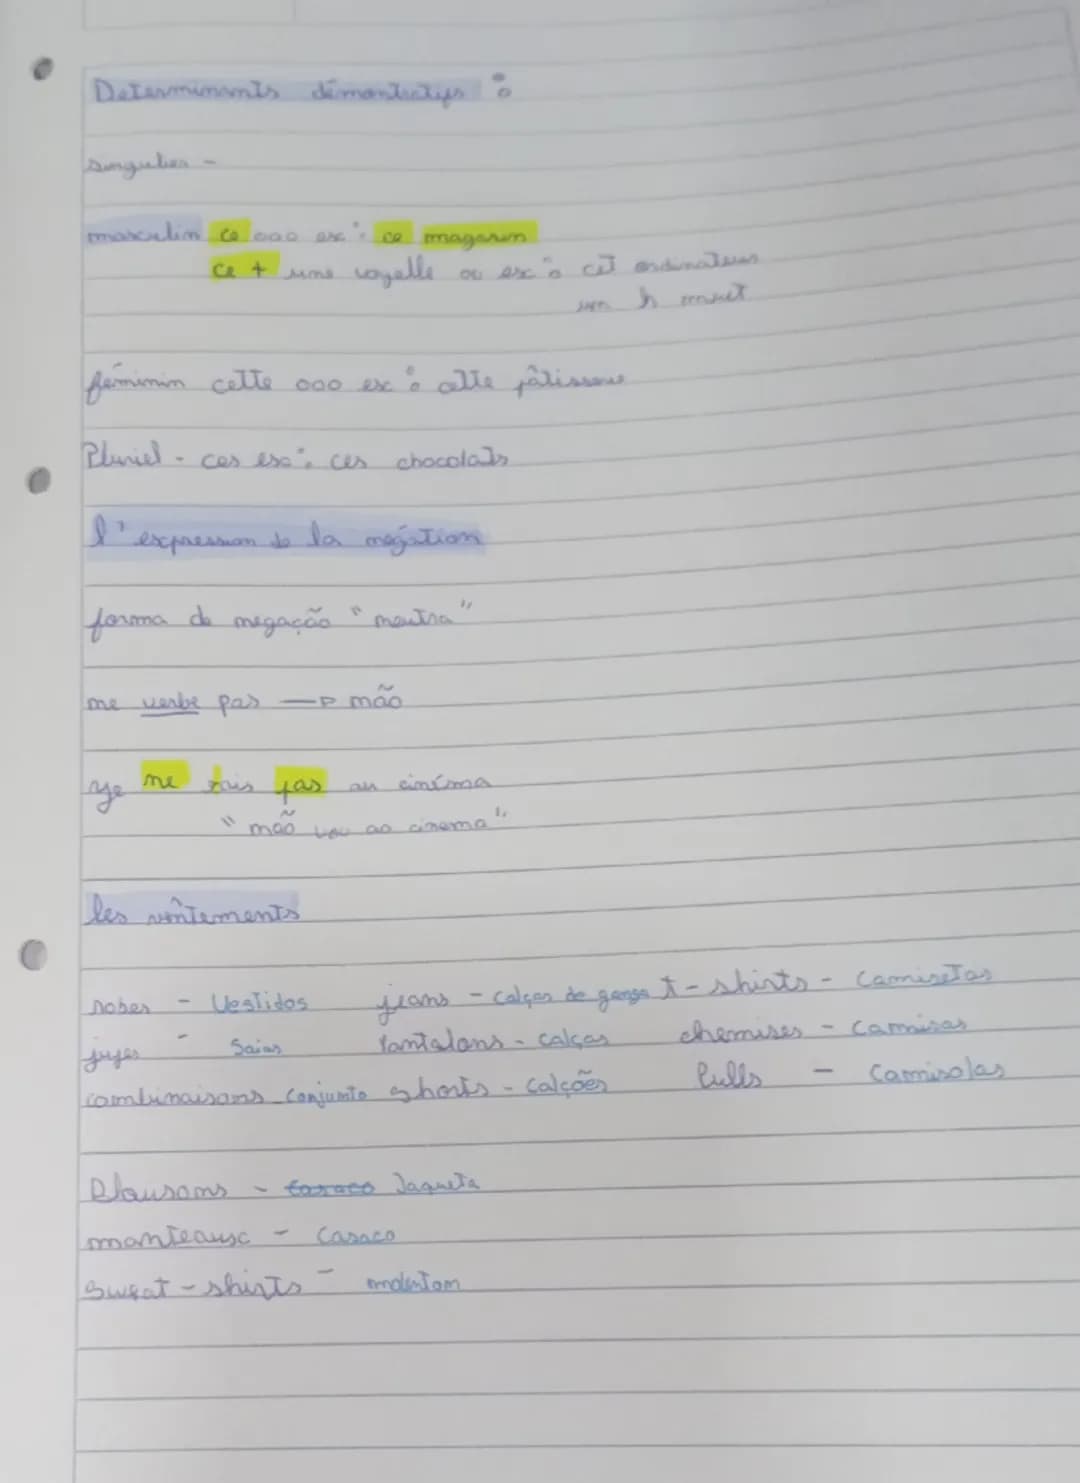 Determinants démontratifs :
singulier -
masculin ce ooo ex: ce magasin
ce + une voyelle ou ex: cet ordinateur
un h muet
féminin cette ooo ex: cette pâtisserie
Pluriel - ces ex: ces chocolats
l'expression de la négation
forma de negação "neutra"
ne verbe pas → não
je ne vais pas au cinéma
"não vou ao cinema"
les vêntements
robes - Vestidos jeans - calças de ganga t-shirts - Camisetas
jupes - Saias Pantalons - calças chemises - Camisas
combinaisons Conjunto shorts - Calções Pulls - Camisolas
Blousons - casaco Jaqueta
manteaux - Casaco
Sweat-shirts -